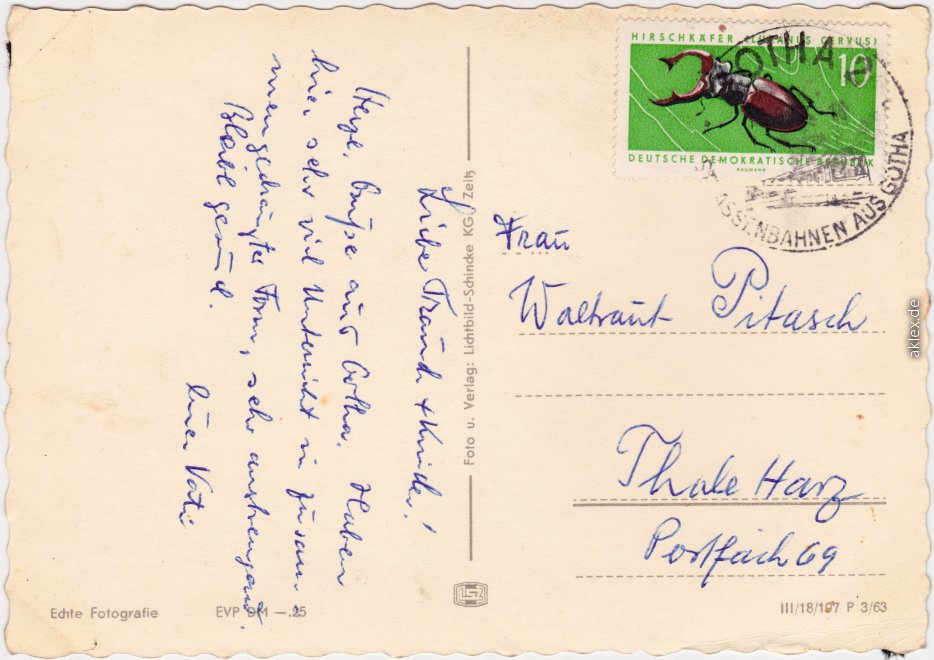 Liebe Traudl + Kinder!
Herzl. Grüße aus Gotha. Haben
hier sehr viel Unterricht in zusam-
mengedrängter Form, sehr anstrengend.
Bleibt gesund.
Euer Vati
Echte Fotografie
EVP DM —.25
Foto u. Verlag: Lichtbild-Schincke KG., Zeitz
HIRSCHKÄFER (LUCANUS CERVUS)
10
DEUTSCHE DEMOKRATISCHE REPUBLIK
NAUMANN
GOTHA 2
STRASSENBAHNEN AUS GOTHA
Frau
Waltraut Pitasch
Thale Harz
Postfach 69
III/18/197 P 3/63
aklex.de